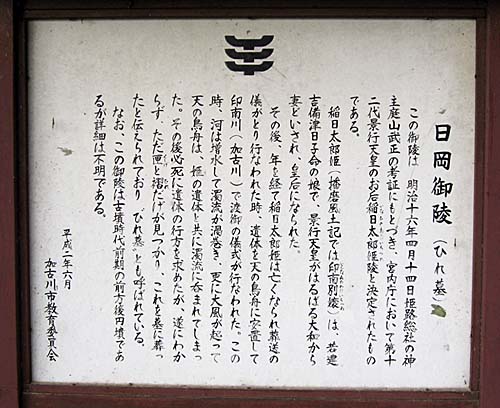 日岡御陵（ひれ墓）
この御陵は、明治十六年四月十四日姫路総社の神
主庭山武正の考証にもとづき、宮内庁において第十
二代景行天皇のお后稲日太郎姫陵と決定されたもの
である。
稲日太郎姫（播磨風土記では印南別嬢）は、若建
吉備津日子命の娘で、景行天皇がはるばる大和から
妻どいされ、皇后になられた。
その後、年を経て稲日太郎姫は亡くなられ葬送の
儀がとり行なわれた時、遺体を天の鳥舟に安置して
印南川（加古川）で渡御の儀式が行なわれた。この
時、河は増水して濁流が渦巻き、更に大風が起って
天の鳥舟は、姫の遺体と共に濁流に呑まれてしまっ
た。その後必死に遺体の行方を求めたが、遂にわか
らず、ただ匣と褶だけが見つかり、これを墓に葬っ
たと伝えられており“ひれ墓”とも呼ばれている。
なお、この御陵は古墳時代前期の前方後円墳であ
るが詳細は不明である。
平成二年六月
加古川市教育委員会